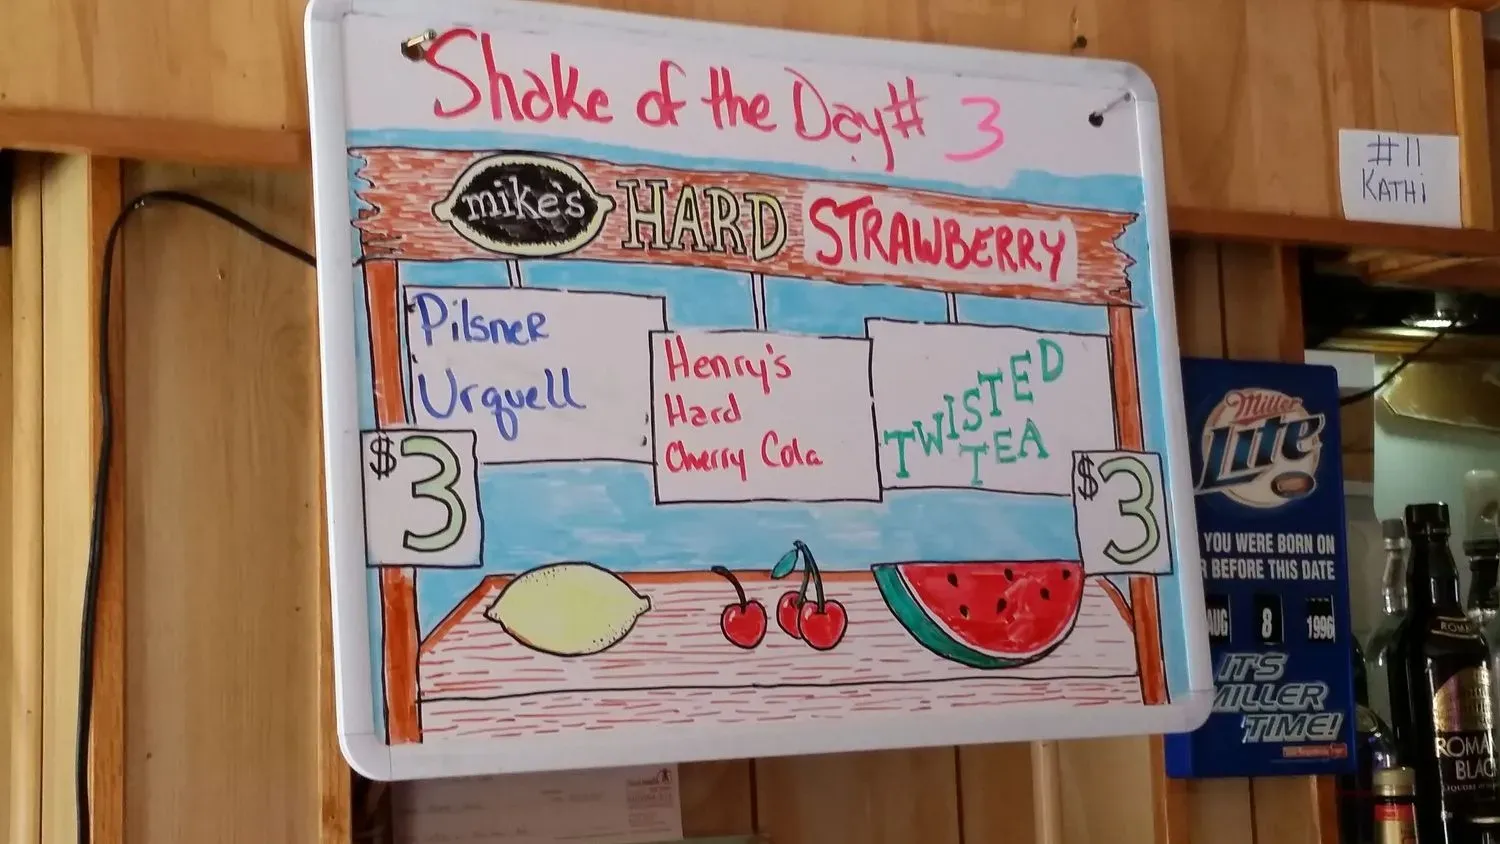 Shake of the Day# 3
mike's HARD STRAWBERRY
Pilsner
Urquell
Henry's
Hard
Cherry Cola
TWISTED
TEA
$3
$3
#11
KATHi
Miller
Lite
YOU WERE BORN ON
R BEFORE THIS DATE
AUG 8 1996
IT'S
MILLER
TIME!
ROMA
BLAC